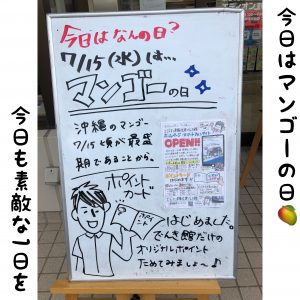 今日はマンゴーの日🥭
今日はなんの日?
7/15(水)は…
マンゴーの日
沖縄のマンゴー
7/15頃が最盛
期であることから。
OPEN!!
ポイント
カード
はじめました。
でんき館だけの
オリジナルポイント
ためてみましょ〜♪
今日も素敵な1日を